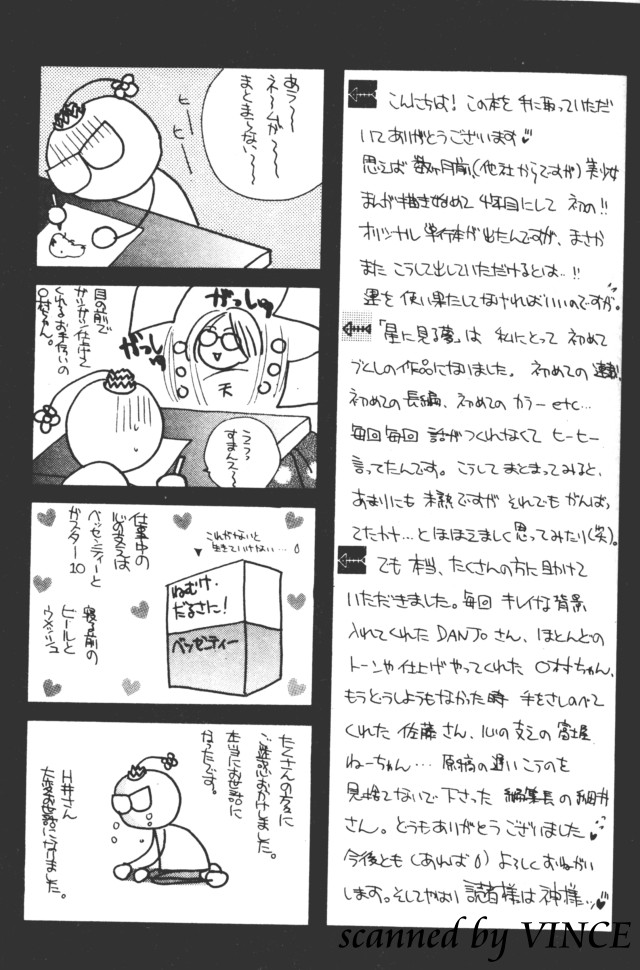 こんにちは！この本を手に取っていただ
いてありがとうございます♥
思えば数ヶ月前、(他社からですが)美少女
まんが描き始めて4年目にして初の!!
オリジナル単行本が出たんですが、まさか
またこうして出していただけるとは..!!
運を使い果たしてなければいいのですが。
「星に見る夢」は私にとって初めて
づくしの作品になりました。初めての連載、
初めての長編、初めてのカラーetc…
毎回毎回話がつくれなくてヒーヒー
言ってたんです。こうしてまとまってみると、
あまりにも未熟ですがそれでもがんばっ
てたかナ…とほほえましく思ってみたり(笑)。
でも本当、たくさんの方に助けて
いただきました。毎回キレイな背景
入れてくれたDANJOさん、ほとんどの
トーンや仕上げやってくれた〇村ちゃん、
もうどうしようもなかった時手をさしのべて
くれた佐藤さん、心の支えの富士屋
ねーちゃん…原稿の遅いこうのを
見捨てないで下さった編集長の細井
さん。どうもありがとうございました
今後とも(あれば)よろしくおねがい
します。そしてやはり読者様は神様ッ♥
あう〜〜
ネームが〜〜
まとまらない〜〜
ヒー
ヒー
目の前で
ガツガツ仕上げて
くれるお手伝いの
〇村ちゃん。
がっしゅ
がっしゅ
天
ううっっ
すまんえ〜
仕事中の
心の支えは
ベッセンティーと
ガスター10
寝る前の
ビールと
ウメッシュ
これがないと
生きていけない…
ねむけ・
だるさに！
ベッセンティー
たくさんの方々に
ご迷惑おかけしました。
本当にお世話に
なったです。
H井さん
大変お世話になりました。
scanned by VINCE